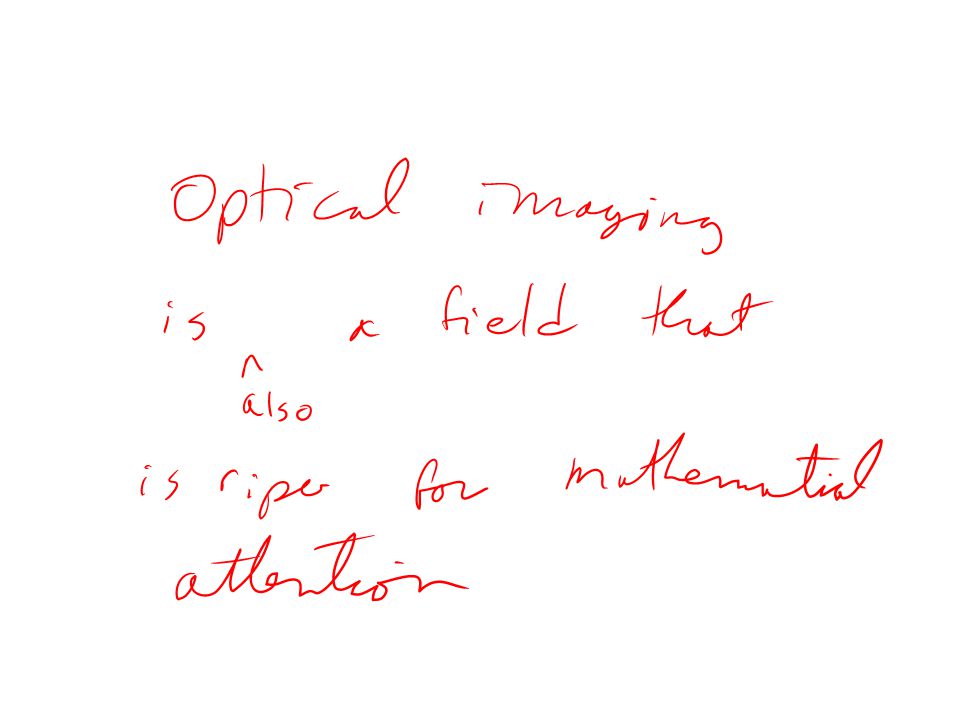 Optical imaging
is a field that
^
also
is ripe for mathematical
attention